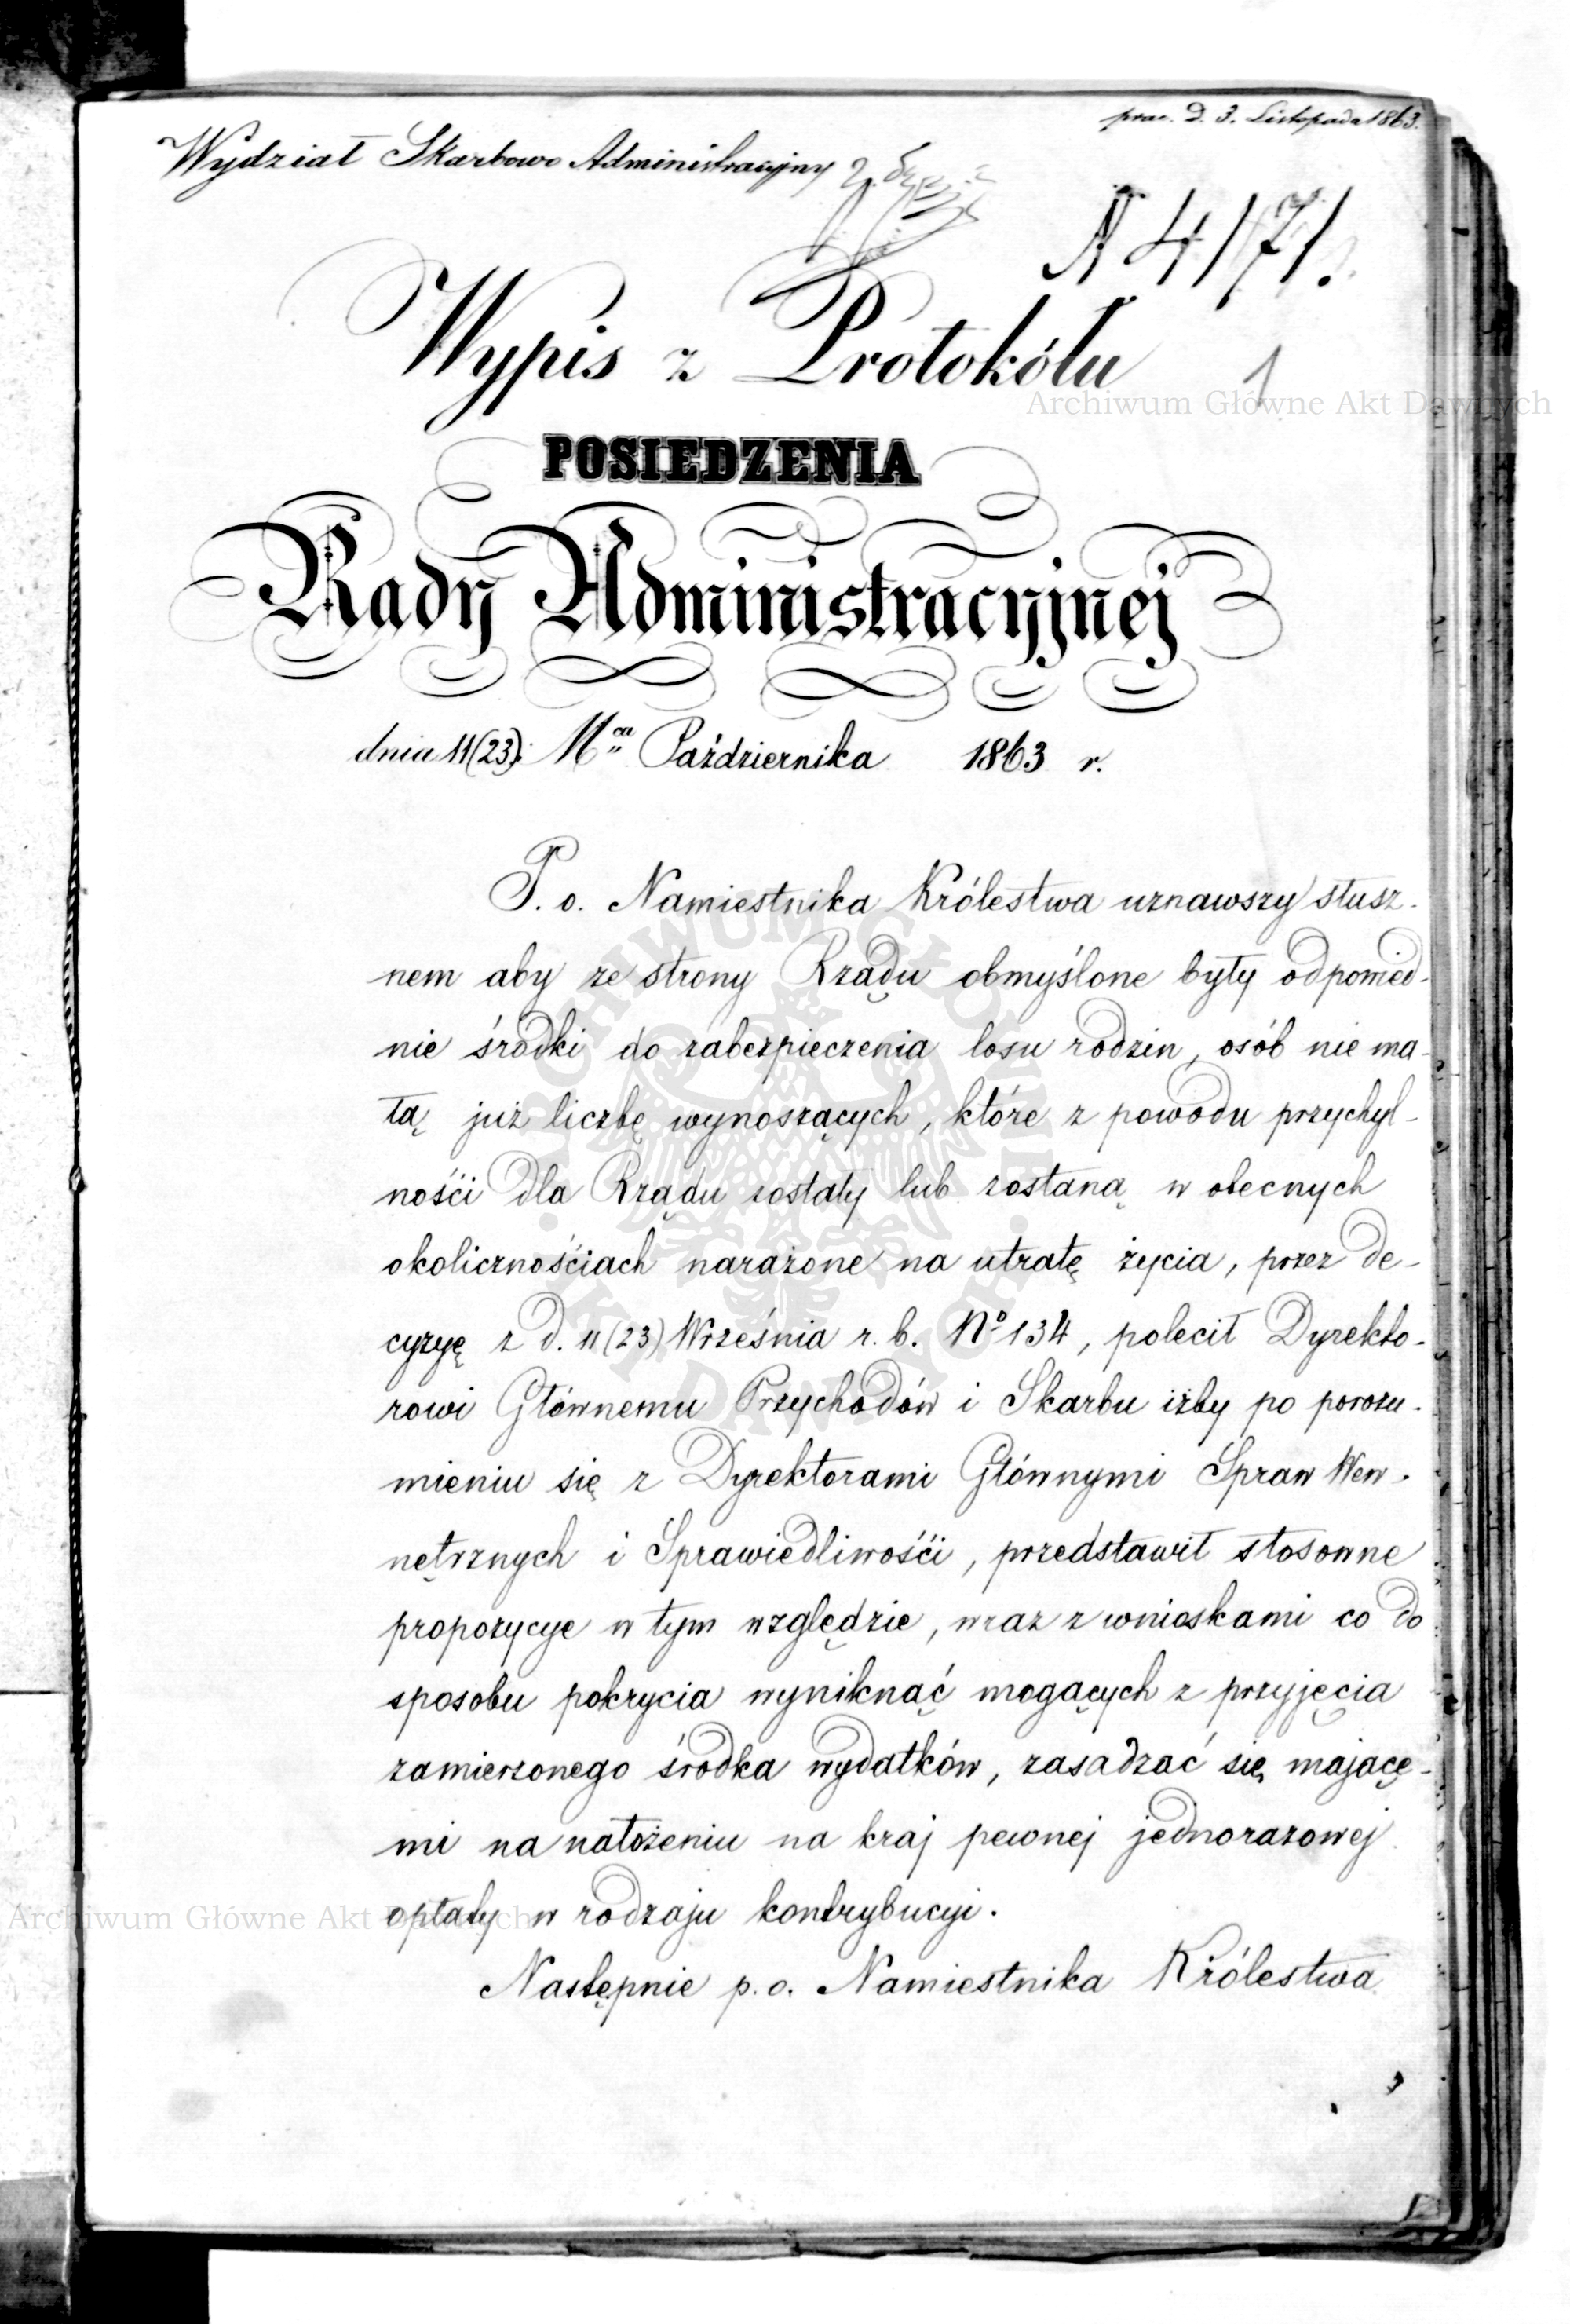 prac. d. 3. Listopada 1863.
Wydział Skarbowo Administracyjny
N 4171.
Wypis z Protokółu
1
Archiwum Główne Akt Dawnych
POSIEDZENIA
Rady Administracyjnej
dnia 11(23). Mca Października 1863 r.
P. o. Namiestnika Królestwa uznawszy słusz-
nem aby ze strony Rządu obmyślone były odpowied-
nie środki do zabezpieczenia losu rodzin, osób nie ma-
łą już liczbę wynoszących, które z powodu przychyl-
ności dla Rządu zostały lub zostaną w obecnych
okolicznościach narażone na utratę życia, przez de-
cyzyę z d. 11(23) Września r. b. No 134, polecił Dyrekto-
rowi Głównemu Przychodów i Skarbu iżby po porozu-
mieniu się z Dyrektorami Głównymi Spraw Wew-
nętrznych i Sprawiedliwości, przedstawił stosowne
propozycye w tym względzie, wraz z wnioskami co do
sposobu pokrycia wyniknąć mogących z przyjęcia
zamierzonego środka wydatków, zasadzać się mającę-
mi na nałożeniu na kraj pewnej jednorazowej
opłaty w rodzaju kontrybucyi.
Archiwum Główne Akt Dawnych
Następnie p. o. Namiestnika Królestwa